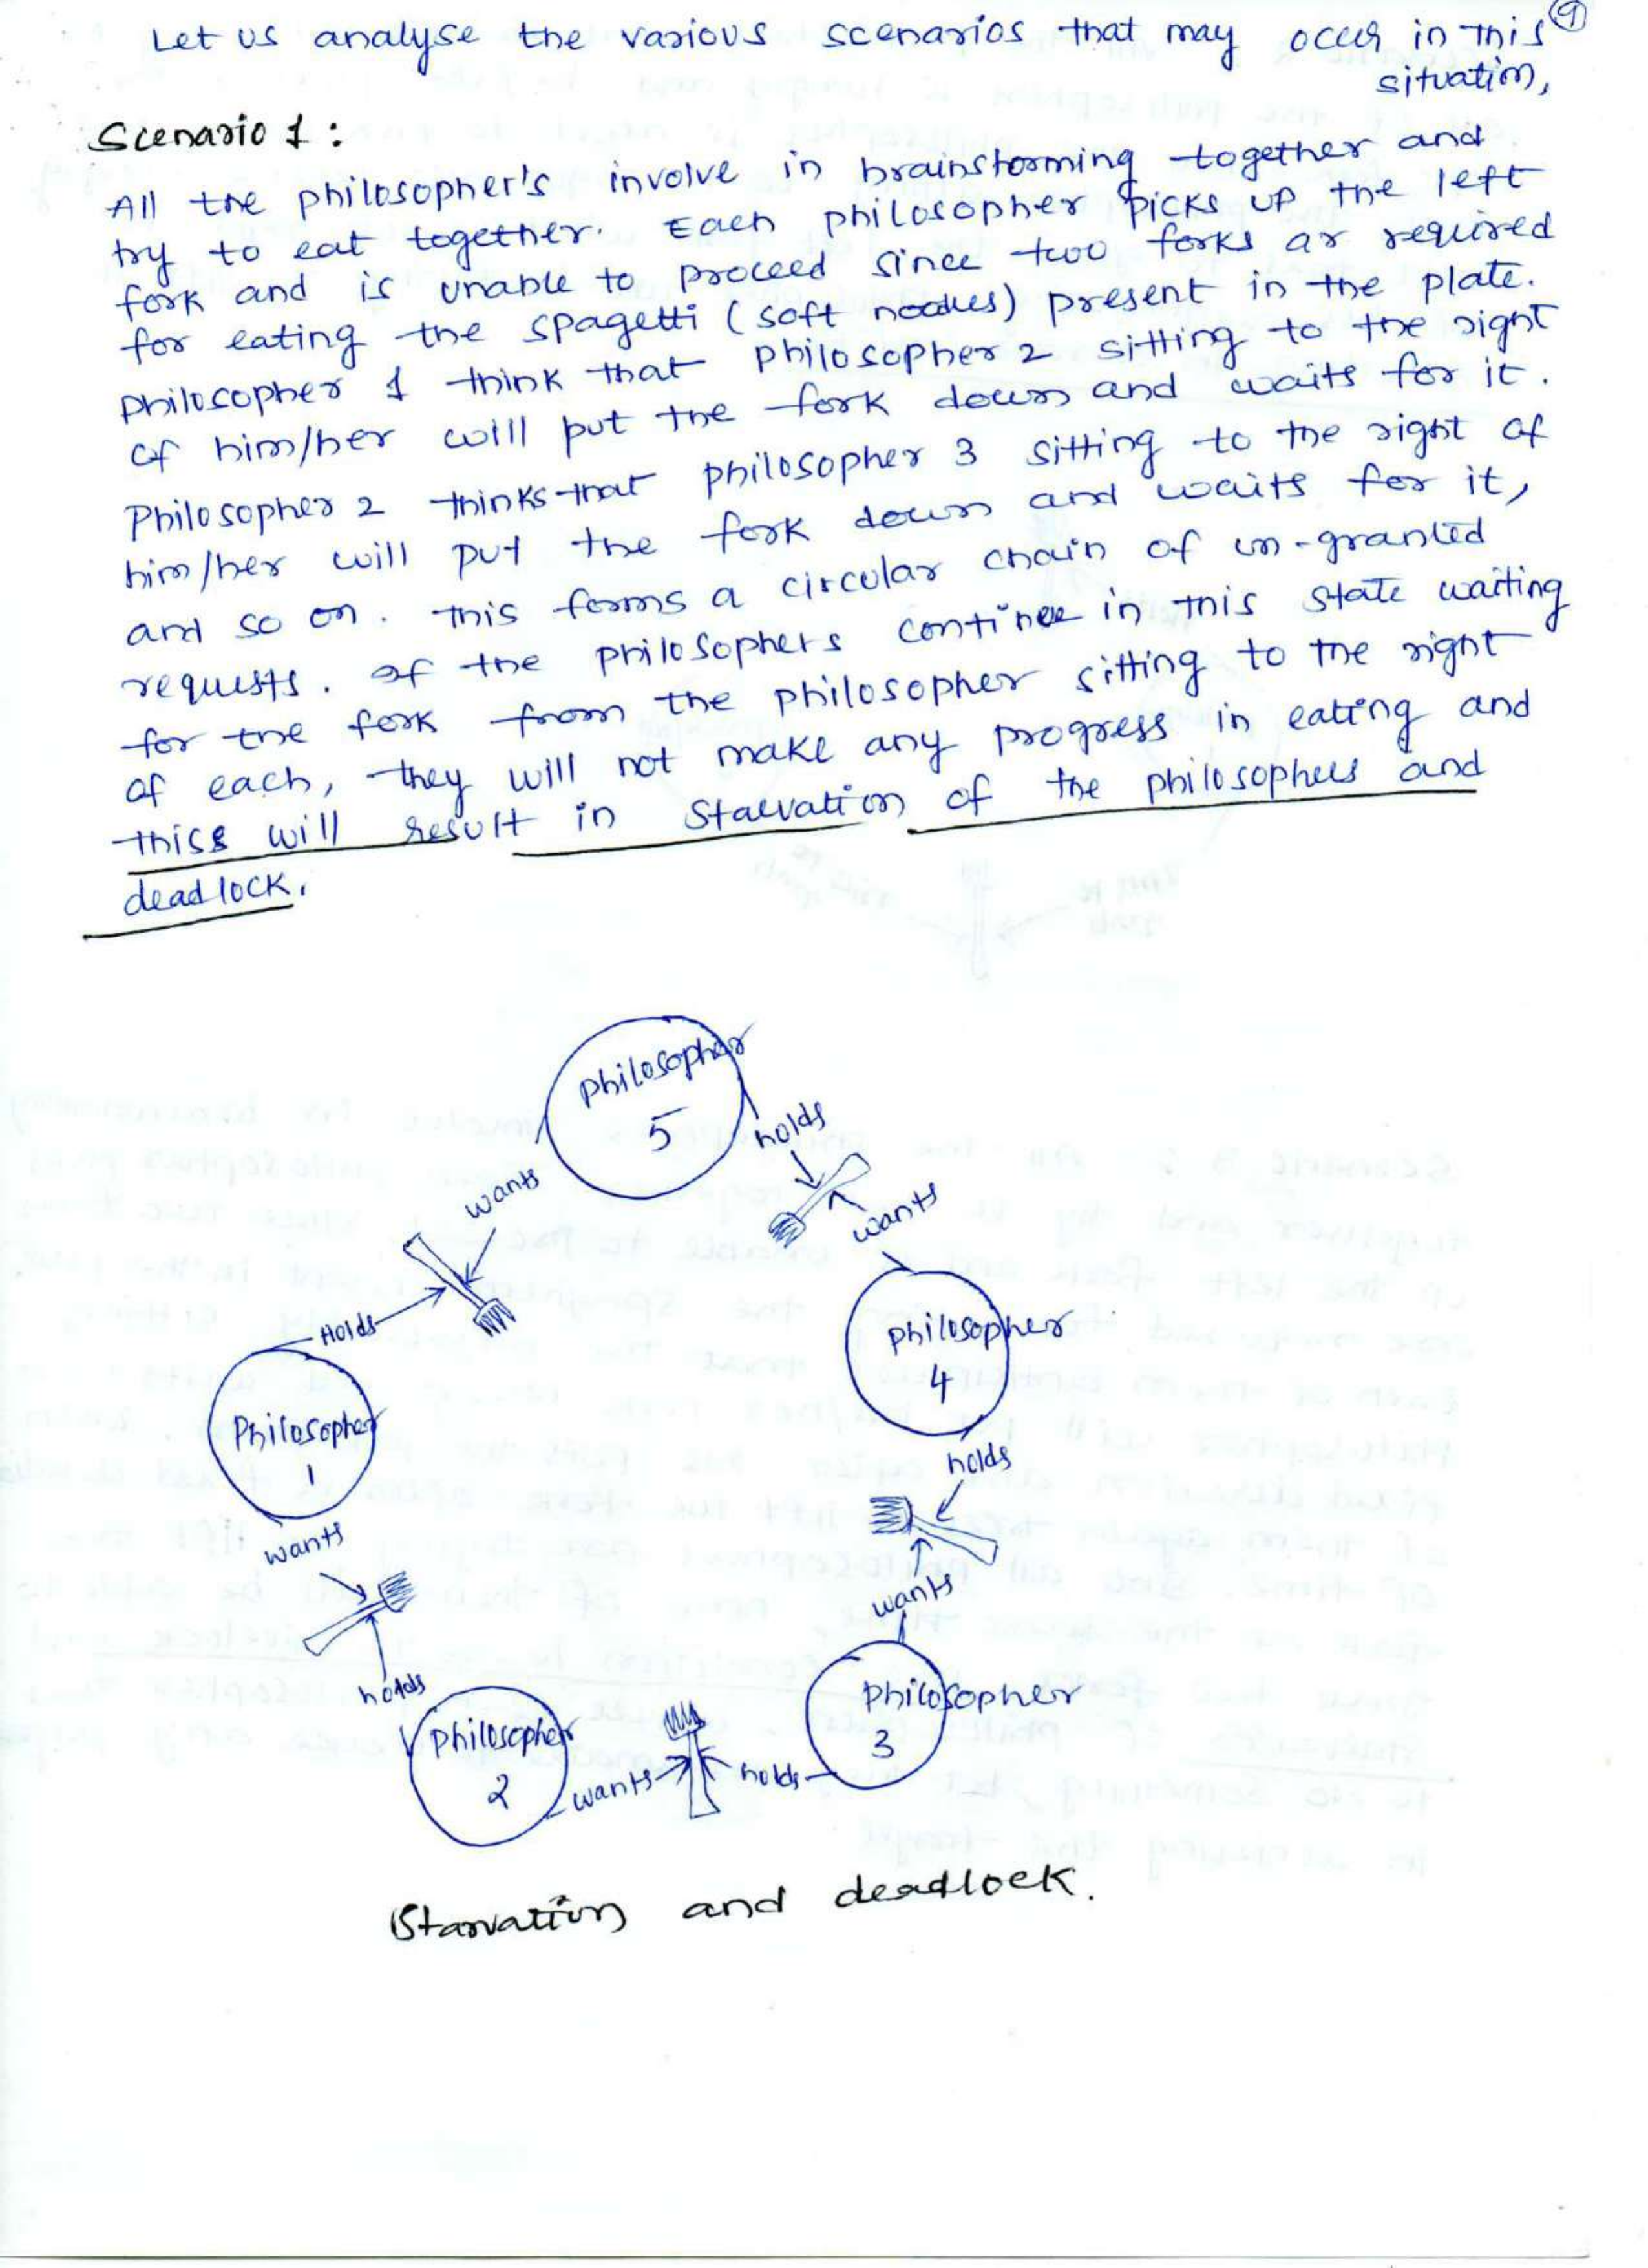 Let us analyse the various scenarios that may occur in this 9
situation,
Scenario 1 :
All the philosopher's involve in brainstorming together and
try to eat together. Each philosopher picks up the left
fork and is unable to proceed since two forks ar required
for eating the spagetti (soft noodles) present in the plate.
Philosopher 1 think that philosopher 2 sitting to the right
of him/her will put the fork down and waits for it.
Philosopher 2 thinks that philosopher 3 sitting to the right of
him/her will put the fork down and waits for it,
and so on. This forms a circular chain of un-granted
requests. If the philosophers continee in this state waiting
for the fork from the philosopher sitting to the right
of each, they will not make any progress in eating and
this will result in Starvation of the philosophers and
deadlock.
Philosopher
5
holds
wants
wants
Holds
Philosopher
4
Philosopher
1
holds
wants
wants
holds
Philosopher
3
Philosopher
2
wants
holds
Starvation and deadlock.